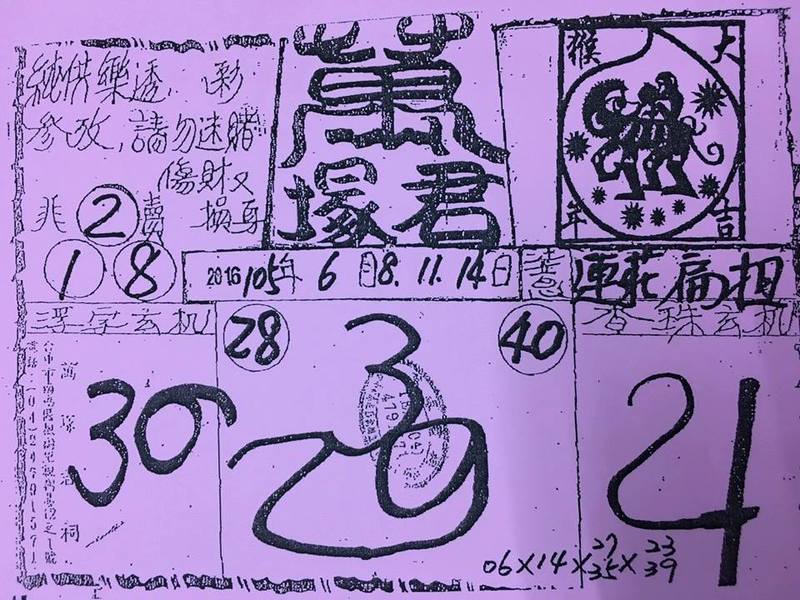 純供樂透彩
參攷,請勿迷賭
傷財又
非 2 賣 損身
1 8
萬
塚君
猴 大
年 吉
2016 105年 6月8.11.14日
連莊扁担
浮字玄机
香珠玄机
28
40
30
3
29
24
萬塚君祠
06×14×27 35×23 39